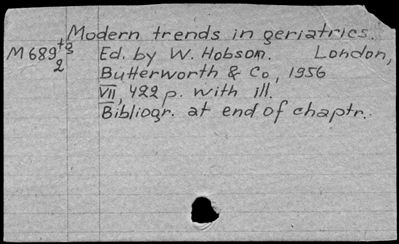 Modern trends in geriatrics.
M689+3 Ed. by W. Hobson. London,
2 Butterworth & Co, 1956
VII, 422 p. with ill.
Bibliogr. at end of chaptr.